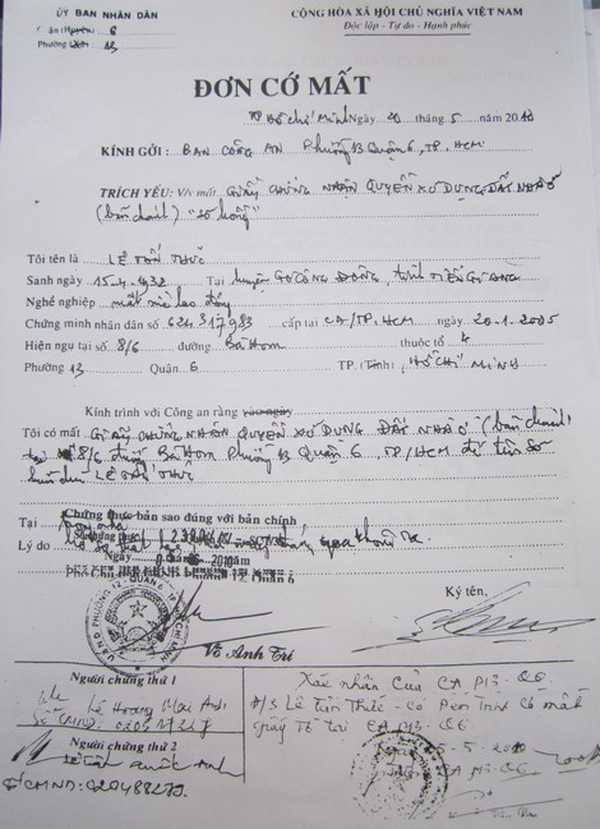 ỦY BAN NHÂN DÂN
CỘNG HÒA XÃ HỘI CHỦ NGHĨA VIỆT NAM
Quận (Huyện) 6
Độc lập - Tự do - Hạnh phúc
Phường (Xã) 13
ĐƠN CỚ MẤT
TP Hồ Chí Minh Ngày 20 tháng 5 năm 2010
KÍNH GỞI : BAN CÔNG AN Phường 13 Quận 6, TP. HCM
TRÍCH YẾU: V/v mất GIẤY CHỨNG NHẬN QUYỀN XỬ DỤNG ĐẤT NHÀ Ở
(bản chánh) "sổ hồng"
Tôi tên là LÊ TẤN THỨC
Sanh ngày 15.4.1932 Tại huyện GÒ CÔNG ĐÔNG, tỉnh TIỀN GIANG
Nghề nghiệp mất sức lao động
Chứng minh nhân dân số cấp tại CA/TP. HCM ngày 20.1.2005
Hiện ngụ tại số 8/6 đường Bà Hom thuộc tổ 4
Phường 13 Quận 6 TP. (Tỉnh) HỒ CHÍ MINH
Kính trình với Công an rằng vào ngày
Tôi có mất GIẤY CHỨNG NHẬN QUYỀN XỬ DỤNG ĐẤT NHÀ Ở (bản chánh)
tại 8/6 đường Bà Hom Phường 13 Quận 6, TP/HCM do tên sở
hữu chủ LÊ TẤN THỨC
Chứng thực bản sao đúng với bản chính
Tại
Lý do
Ngày 2010 năm
Ký tên,
ỦY BAN NHÂN DÂN PHƯỜNG 12 - QUẬN 6 - TP. HỒ CHÍ MINH
Võ Anh Trí
Người chứng thứ 1
Xác nhận Của CA P13-Q6
Lê Hoàng Mai Anh
Ô/S Lê Tấn Thức - Có Đến Trình Có mất
giấy Tờ tại CA P13-Q6
Người chứng thứ 2
5-2010
Lê Quốc Anh
CA P13-Q6
CMND: 020488